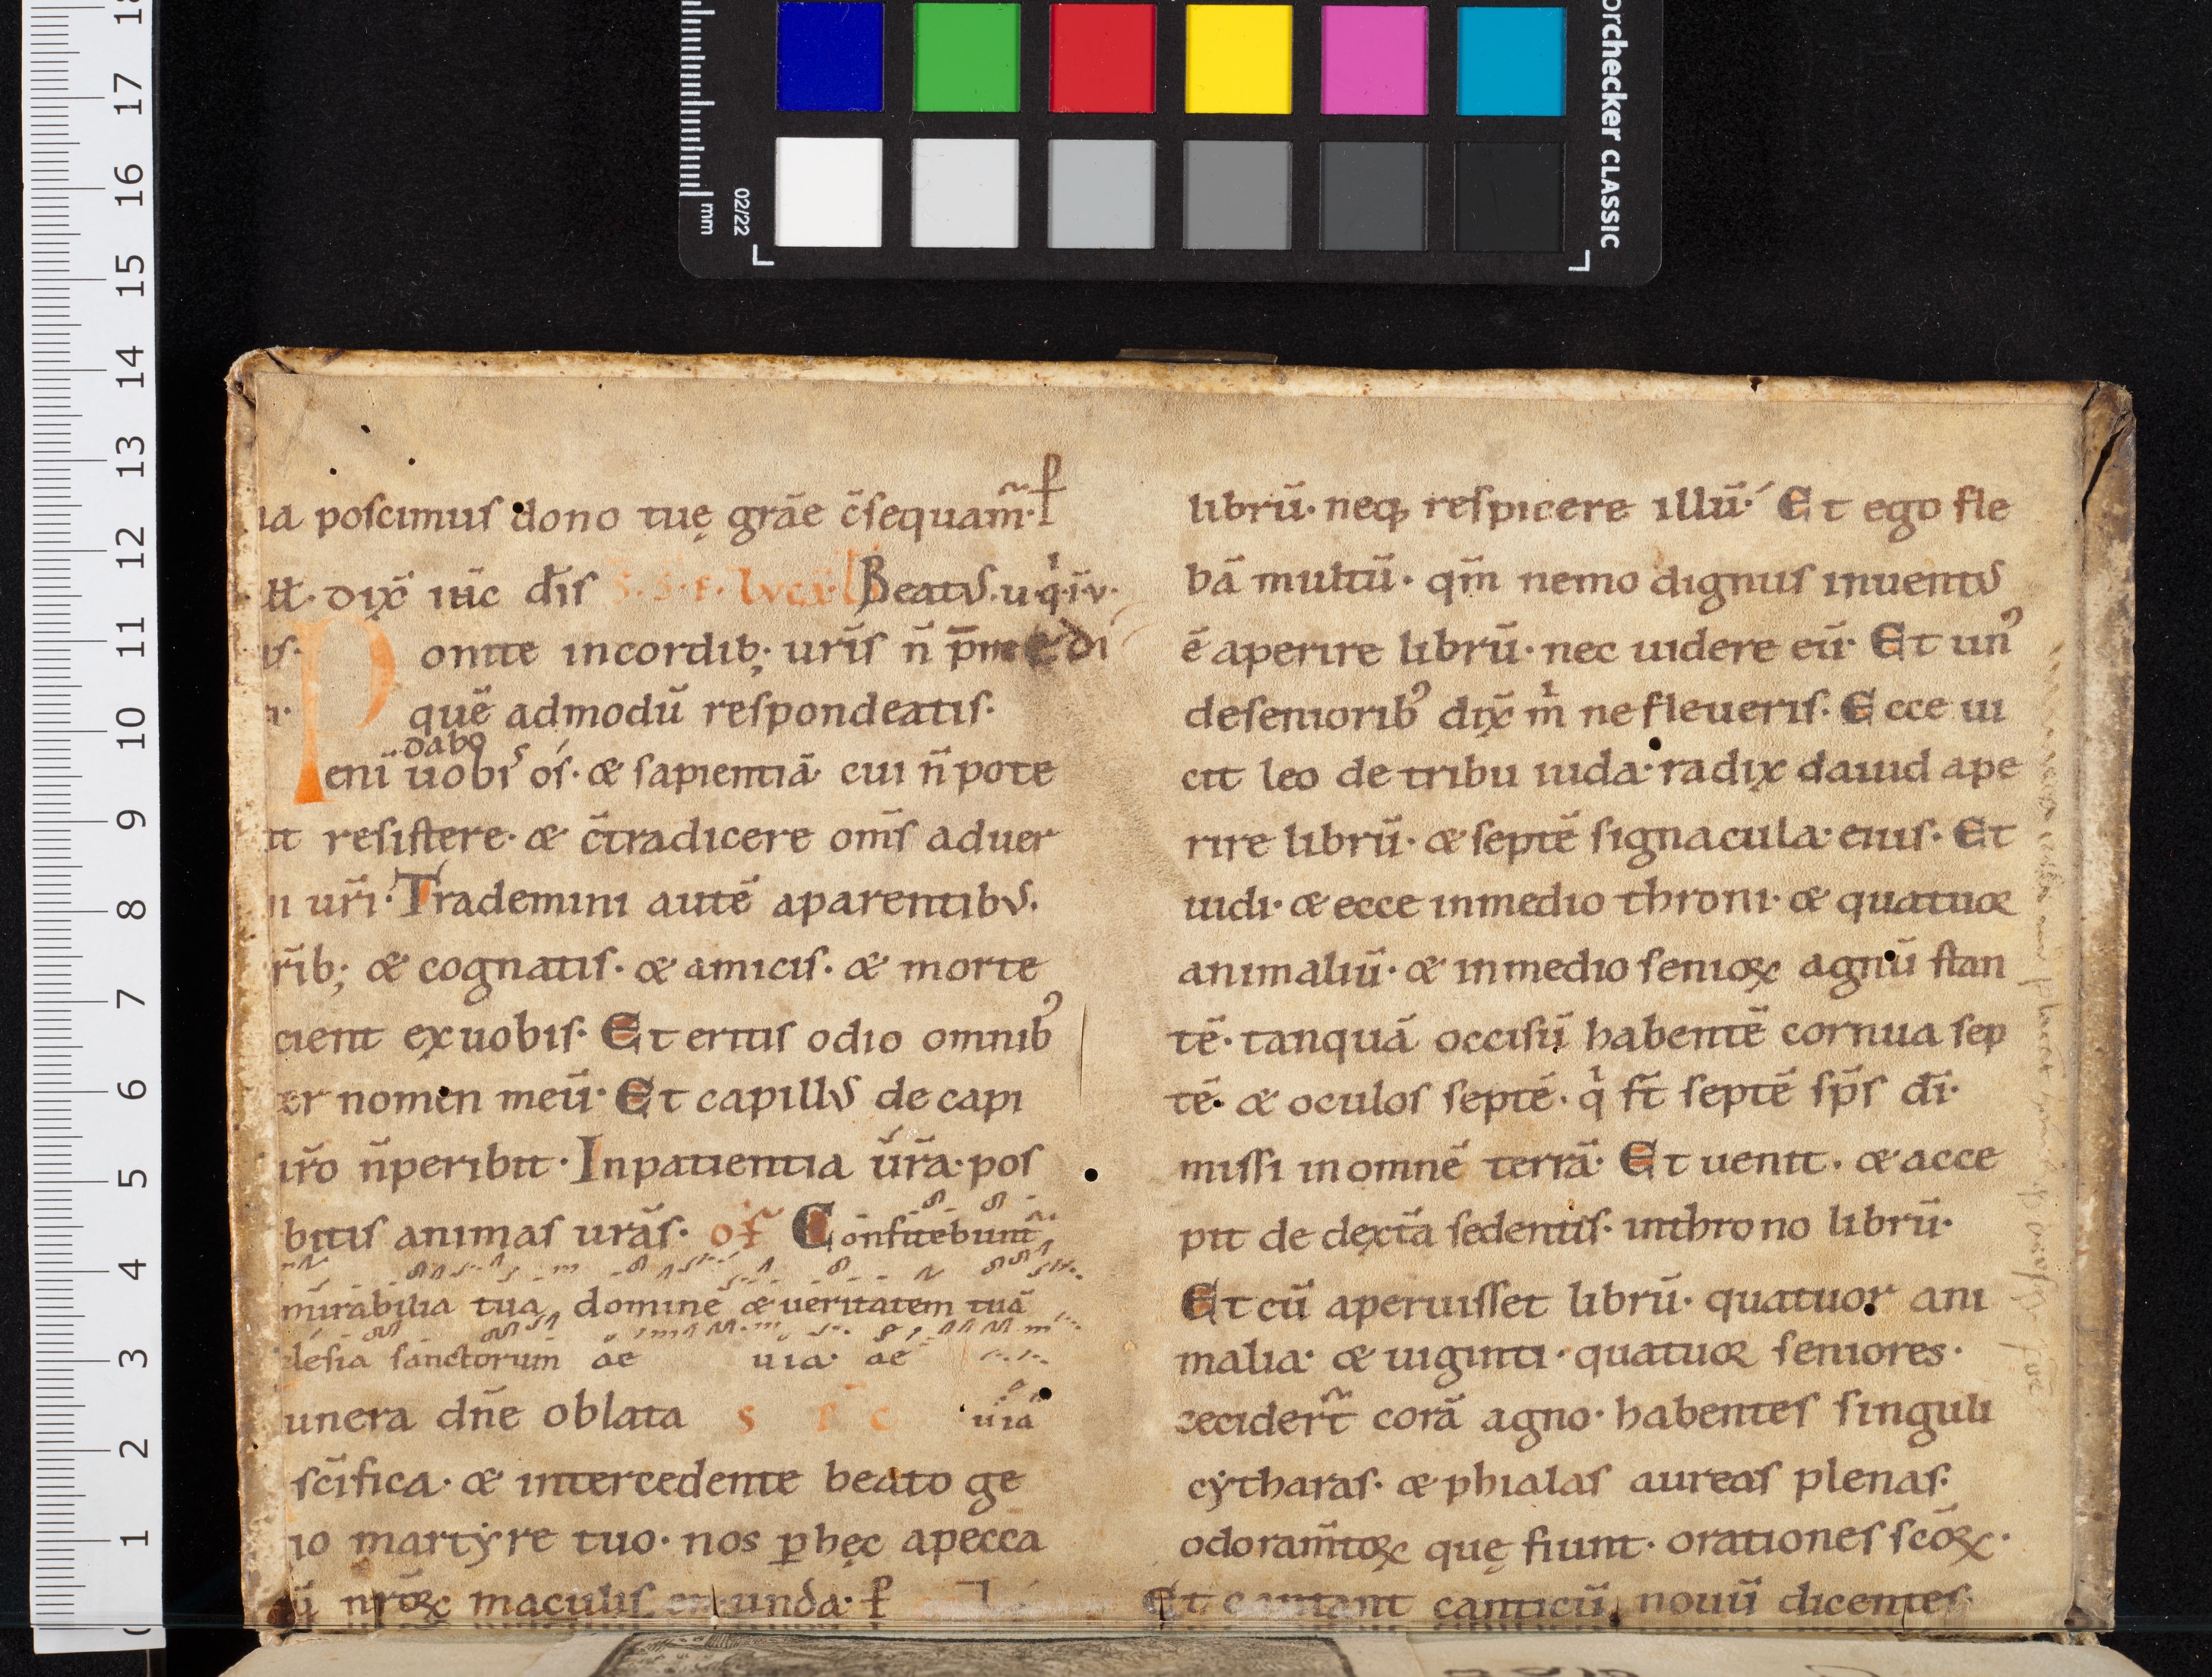 18
17
16
15
14
13
12
11
10
9
8
7
6
5
4
3
2
1
mm
02/22
orchecker CLASSIC
ia poscimus dono tuę grāe c̄sequam̄· ꝑ
dix̄ iħc d̄is S. S. E. lvcā. Beatus·u·q̇·īv·
Ponite incordib; ur̄is n̄ p̄medi
quē admodū respondeatis.
dabo
enī uobis os· & sapientiā cui n̄ pote
tt resistere· & c̄tradicere om̄s aduer
ii ur̄i· Trademini autē aparentibus.
r̄ib; & cognatis· & amicis· & morte
cient ex uobis· Et eritis odio omnib⁹
er nomen meū· Et capillus de capi
ur̄o n̄ peribit· In patientia ūr̄a pos
bitis animas urās· of Confitebunt̄
mirabilia tua domine & ueritatem tuā
lesia sanctorum ae uia ae
unera dn̄e oblata s c uia
sc̄ifica· & intercedente beato ge
io martẏre tuo· nos ꝑ hęc apecca
nr̄oꝝ maculis emunda· ꝑ
librū· neqꝫ respicere illū· Et ego fle
bā multū· qm̄ nemo dignus inuentus
ē aperire librū· nec uidere eū· Et un⁹
desеniorib⁹ dix̄ m̍ ne fleueris· Ecce ui
cit leo de tribu iuda· radix dauid ape
rire librū· & septē signacula eius· Et
uidi· & ecce inmedio throni· & quatuor
animaliū· & inmedio senioꝝ agnū stan
tē· tanquā occisū habentē cornua sep
tē· & oculos septē· q̍ st̄ septē sp̄s d̄i·
missi inomnē terrā· Et uenit· & acce
pit de dext̄a sedentis· inthrono librū·
Et cū aperuisset librū· quatuor ani
malia· & uiginti· quatuor seniores·
cecidert̄ corā agno· habentes singuli
cẏtharas· & phialas aureas plenas·
odoram̄toꝝ quę fiunt· orationes sc̄oꝝ·
Et cantant canticū nouū dicentes·